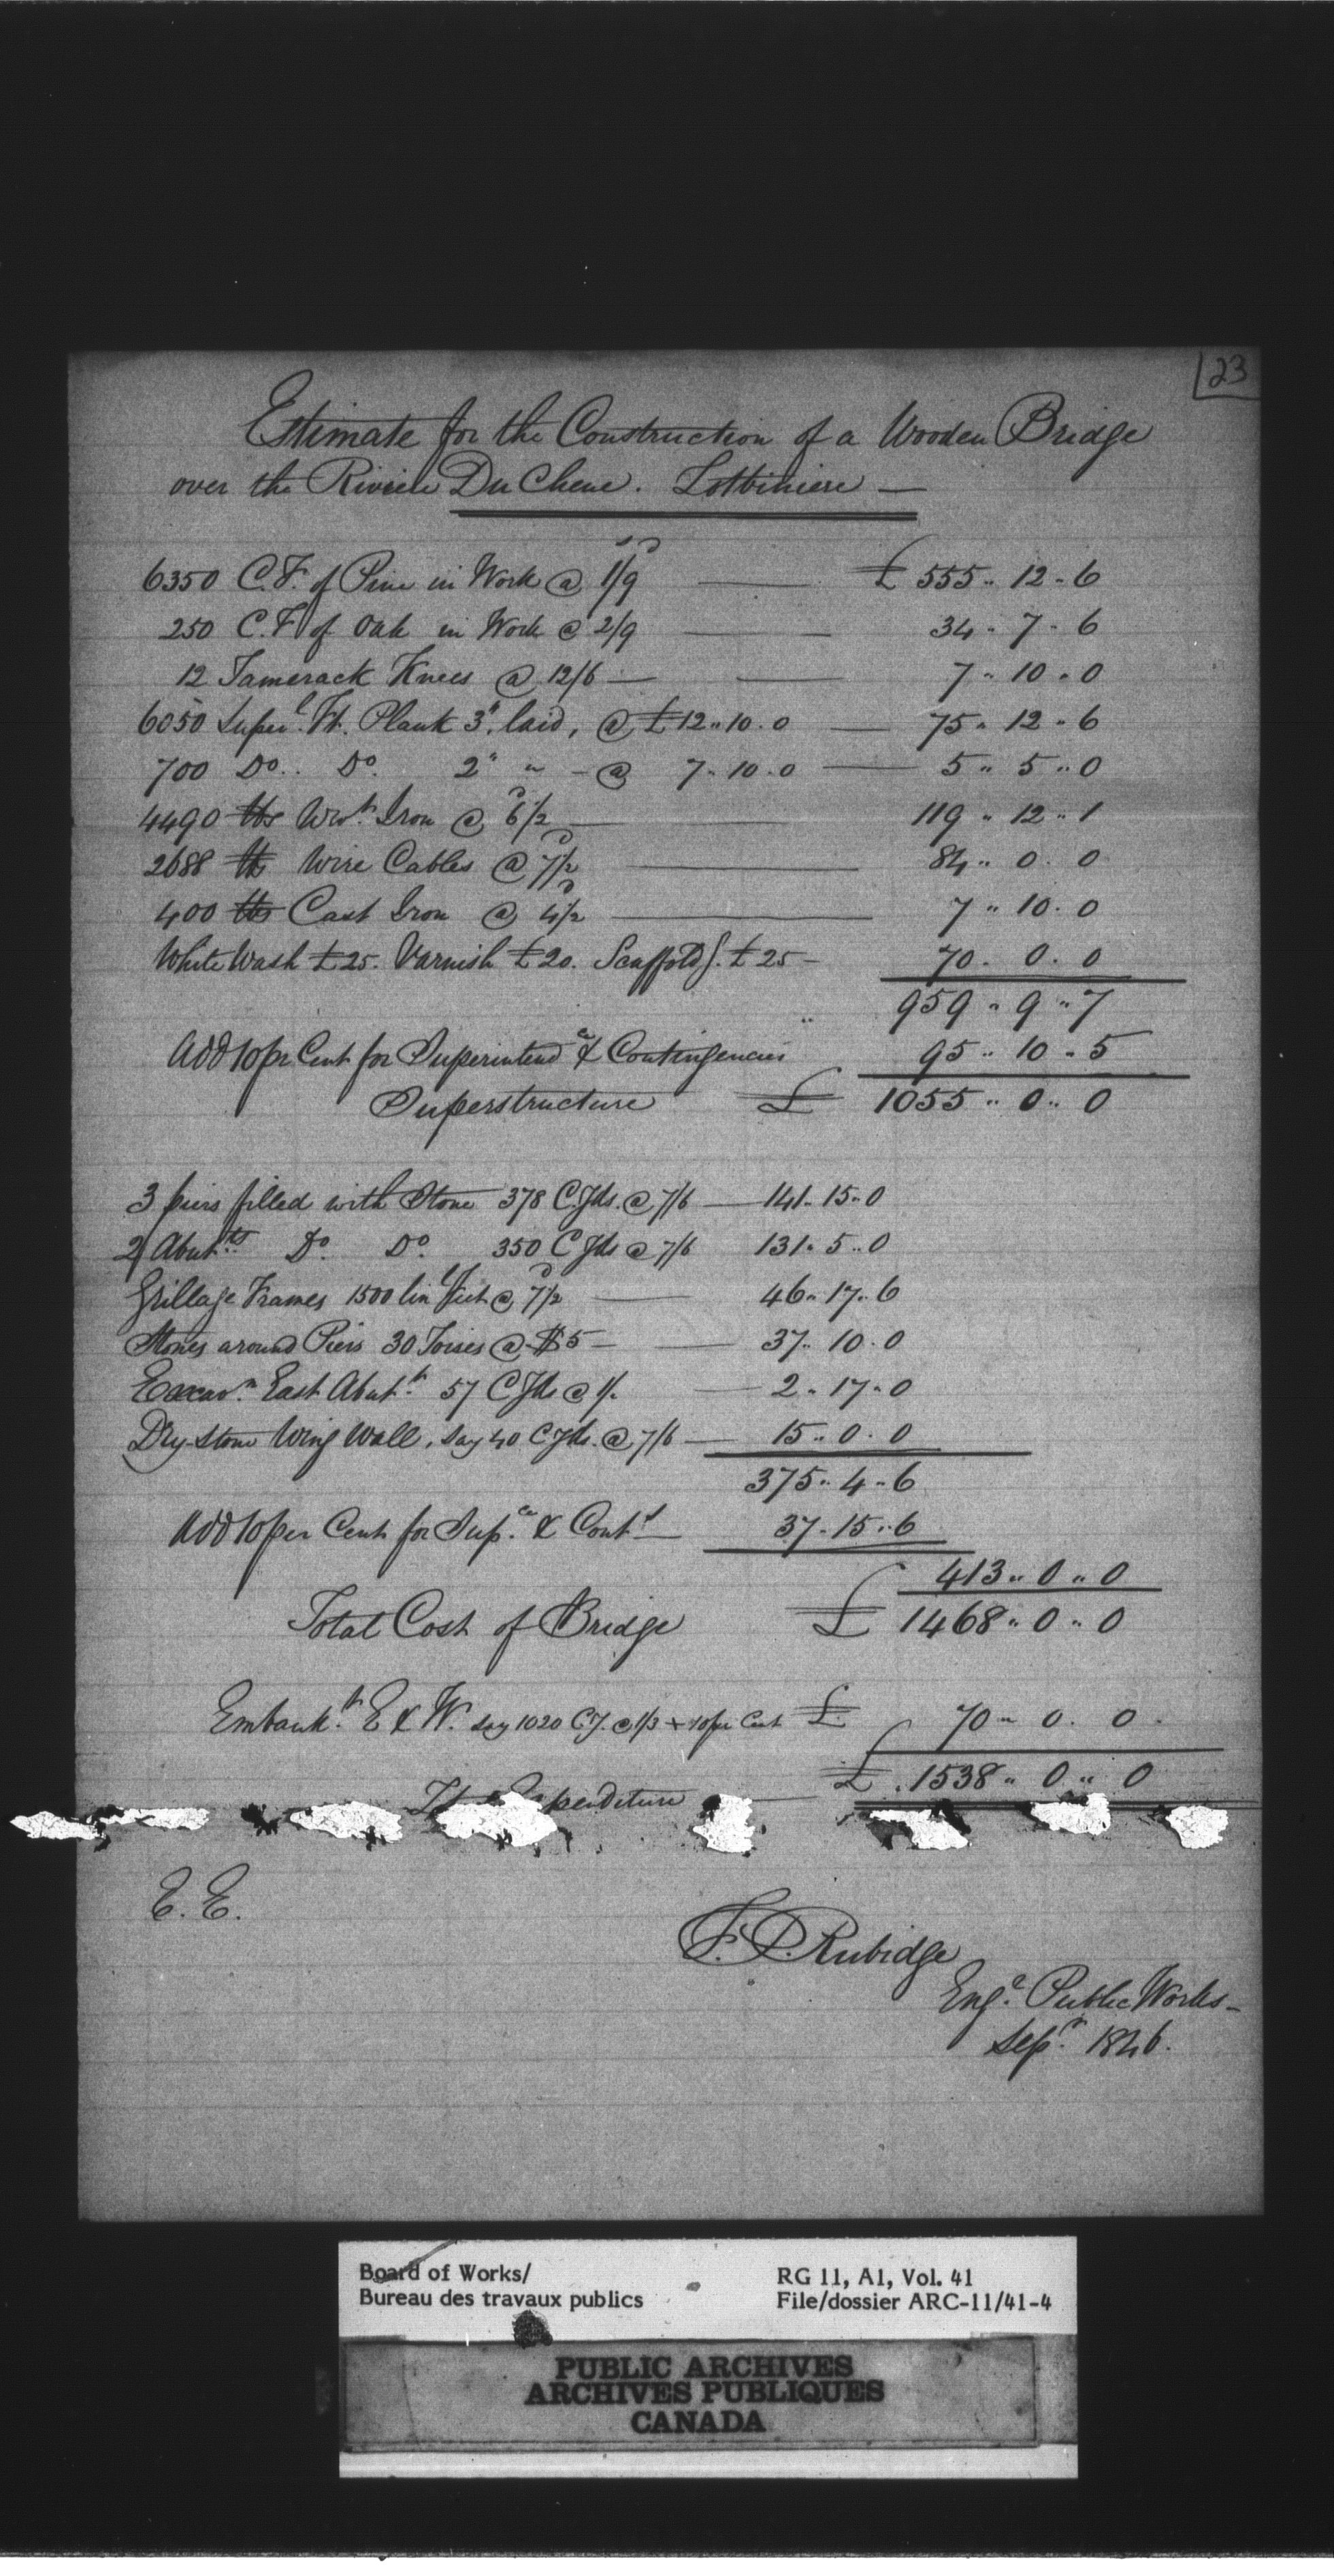 23
Estimate for the Construction of a Wooden Bridge
over the Riviere Du Chene. Lotbiniere —
6350 C.F. of Pine in Work @ 1/9 — £ 555 .. 12 .. 6
250 C.F. of Oak in Work @ 2/9 — 34 .. 7 .. 6
12 Tamerack Knees @ 12/6 — 7 .. 10 .. 0
6050 Superl. Ft. Plank 3" laid, @ £12 .. 10 . 0 — 75 .. 12 .. 6
700 Do. Do. 2" " - @ 7 .. 10 . 0 — 5 .. 5 .. 0
4490 lbs Wrot. Iron @ 6½ — 119 .. 12 .. 1
2688 lb Wire Cables @ 7½ — 84 .. 0 . 0
400 lbs Cast Iron @ 4½ — 7 .. 10 . 0
White Wash £25. Varnish £20. Scaffoldg. £25 — 70 . 0 . 0
959 .. 9 .. 7
Add 10 pr Cent for Superintendce & Contingencies 95 .. 10 .. 5
Superstructure £ 1055 .. 0 .. 0
3 piers filled with Stone 378 C.Yds. @ 7/6 — 141 .. 15 .. 0
2 Abutts. Do. Do. 350 C Yds @ 7/6 131 .. 5 .. 0
Grillage Frames 1500 lin feet @ 7½ — 46 .. 17 .. 6
Stones around Piers 30 Toises @ $5 — 37 .. 10 . 0
Excavn. East Abutt. 57 C Yds @ 1/. — 2 .. 17 .. 0
Dry-stone Wing Wall, say 40 C.Yds. @ 7/6 — 15 .. 0 . 0
375 .. 4 .. 6
Add 10 per Cent for Supce. & Conts — 37 .. 15 .. 6
413 .. 0 .. 0
Total Cost of Bridge £ 1468 .. 0 .. 0
Embankt. E & W. say 1020 C.Y. @ 1/3 + 10 per Cent £ 70 .. 0 . 0 .
Expenditure — £ 1538 .. 0 .. 0
E. E.
F. P. Rubidge
Engr. Public Works —
Sepr. 1846.
Board of Works/
Bureau des travaux publics
RG 11, A1, Vol. 41
File/dossier ARC-11/41-4
PUBLIC ARCHIVES
ARCHIVES PUBLIQUES
CANADA